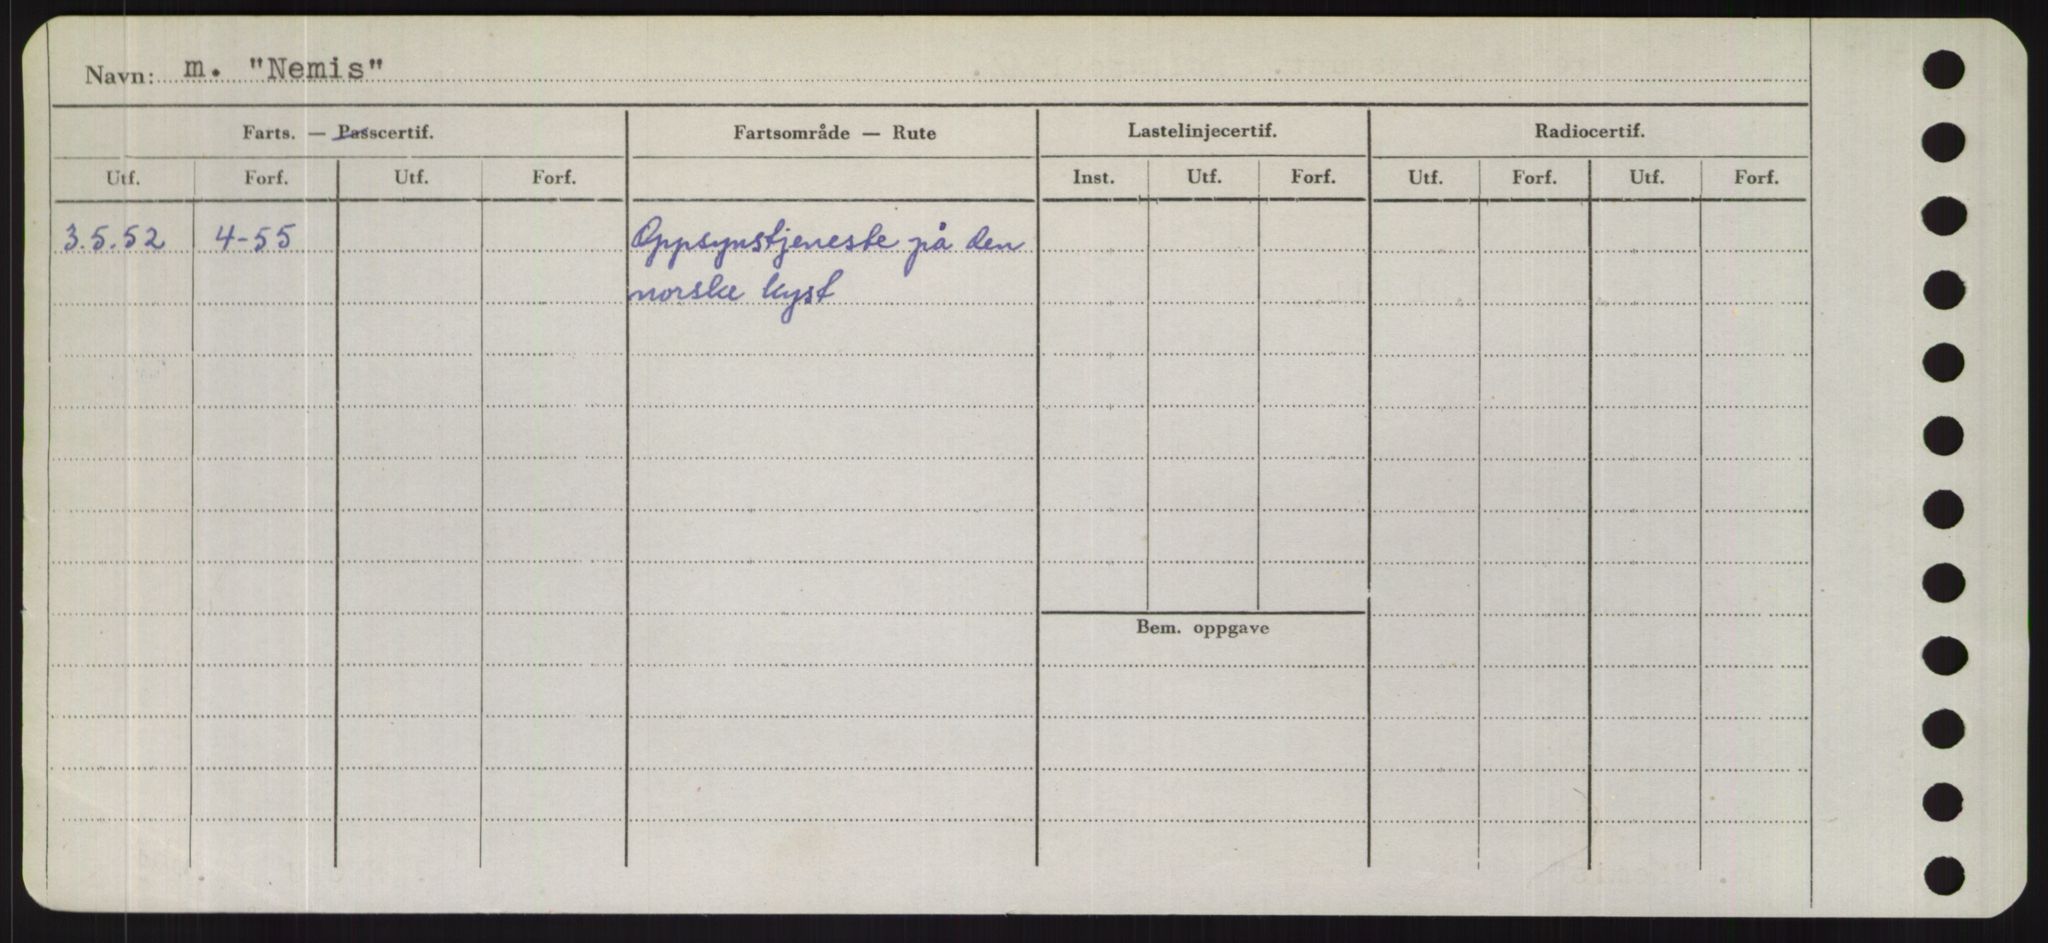 Navn: m. "Nemis"
Farts. — Passcertif. Fartsområde — Rute Lastelinjecertif. Radiocertif.
Utf. Forf. Utf. Forf. Inst. Utf. Forf. Utf. Forf. Utf. Forf.
3.5.52 4-55 Oppsynstjeneste på den
norske kyst
Bem. oppgave